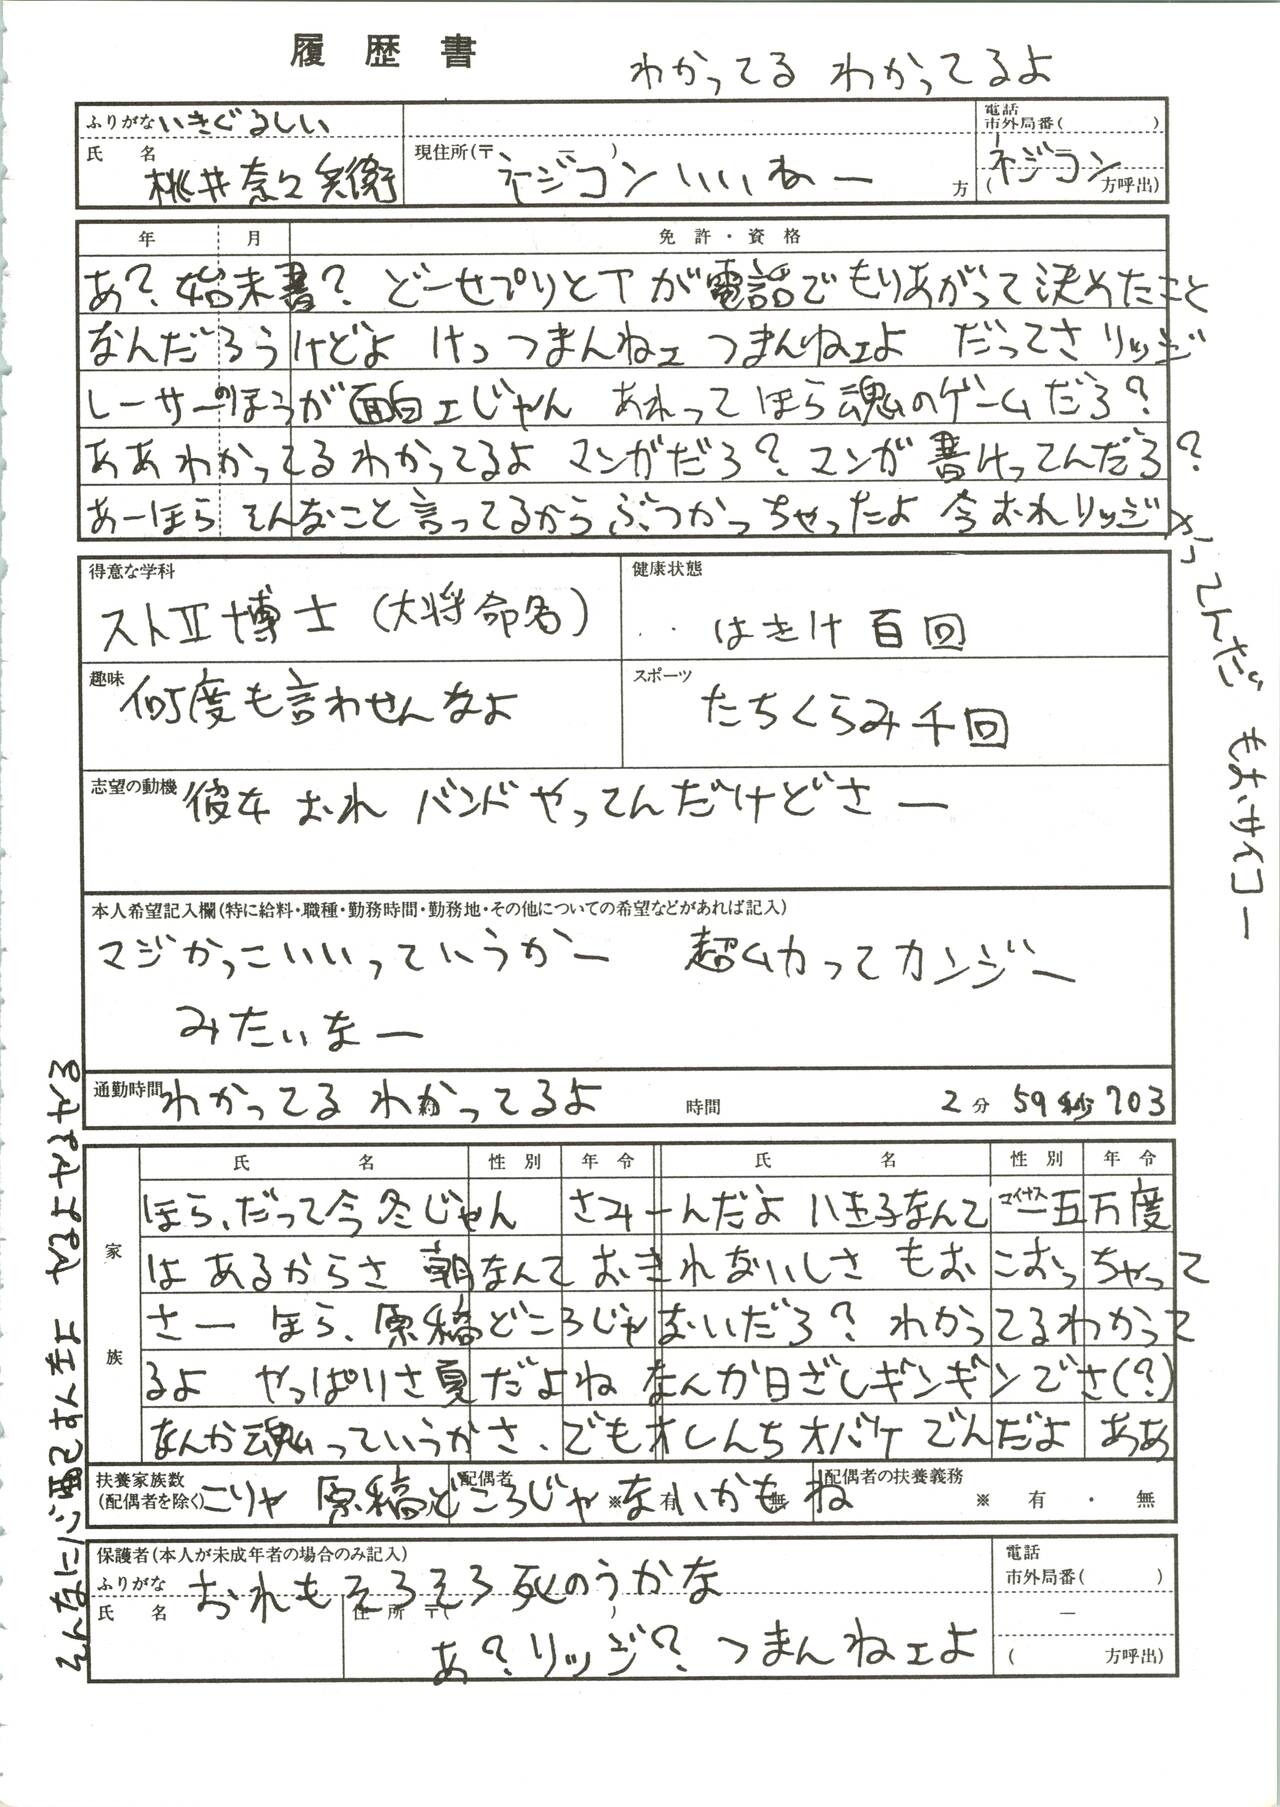 履歴書
わかってる わかってるよ
ふりがな いきぐるしい
氏名 桃井奈々兵衛
現住所(〒 ー )
ネジコン いいねー 方
電話
市外局番( )
ネジコン
( 方呼出)
年 月 免許・資格
あ?始末書? どーせプリとTが電話でもりあがって決めたこと
なんだろうけどよ けっ つまんねェ つまんねェよ だってさ リッジ
レーサーのほうが面白ェじゃん あれって ほら魂のゲームだろ?
ああわかってるわかってるよ マンガだろ?マンガ書けってんだろ?
あーほら そんなこと言ってるからぶつかっちゃったよ 今おれリッジ
やってんだ もおサイコー
得意な学科
ストⅡ博士(大将命名)
健康状態
‥はきけ百回
趣味
何度も言わせんなよ
スポーツ
たちくらみ千回
志望の動機
彼女 おれ バンドやってんだけどさー
本人希望記入欄(特に給料・職種・勤務時間・勤務地・その他についての希望などがあれば記入)
マジかっこいいっていうかー 超ムカってカンジー
みたいなー
通勤時間 わかってる わかってるよ 約 時間 2分 59秒703
家族
氏名 性別 年令 氏名 性別 年令
ほら、だって今冬じゃん さみーんだよ 八王子なんて マイナス ー五万度
はあるからさ 朝なんておきれないしさ もおこおっちゃって
さー ほら、原稿どころじゃないだろ?わかってるわかって
るよ やっぱりさ夏だよね なんか日ざしギンギンでさ(?)
なんか魂っていうかさ、でもオレんちオバケでんだよ ああ
扶養家族数
(配偶者を除く)
配偶者
※ 有 無
配偶者の扶養義務
※ 有・無
こりゃ 原稿どころじゃないかもね
保護者(本人が未成年者の場合のみ記入)
ふりがな おれもそろそろ死のうかな
氏名 住所 〒( )
あ?リッジ? つまんねェよ
電話
市外局番( )
ー
( 方呼出)
そんなに心配すんなよ やるよやるやる